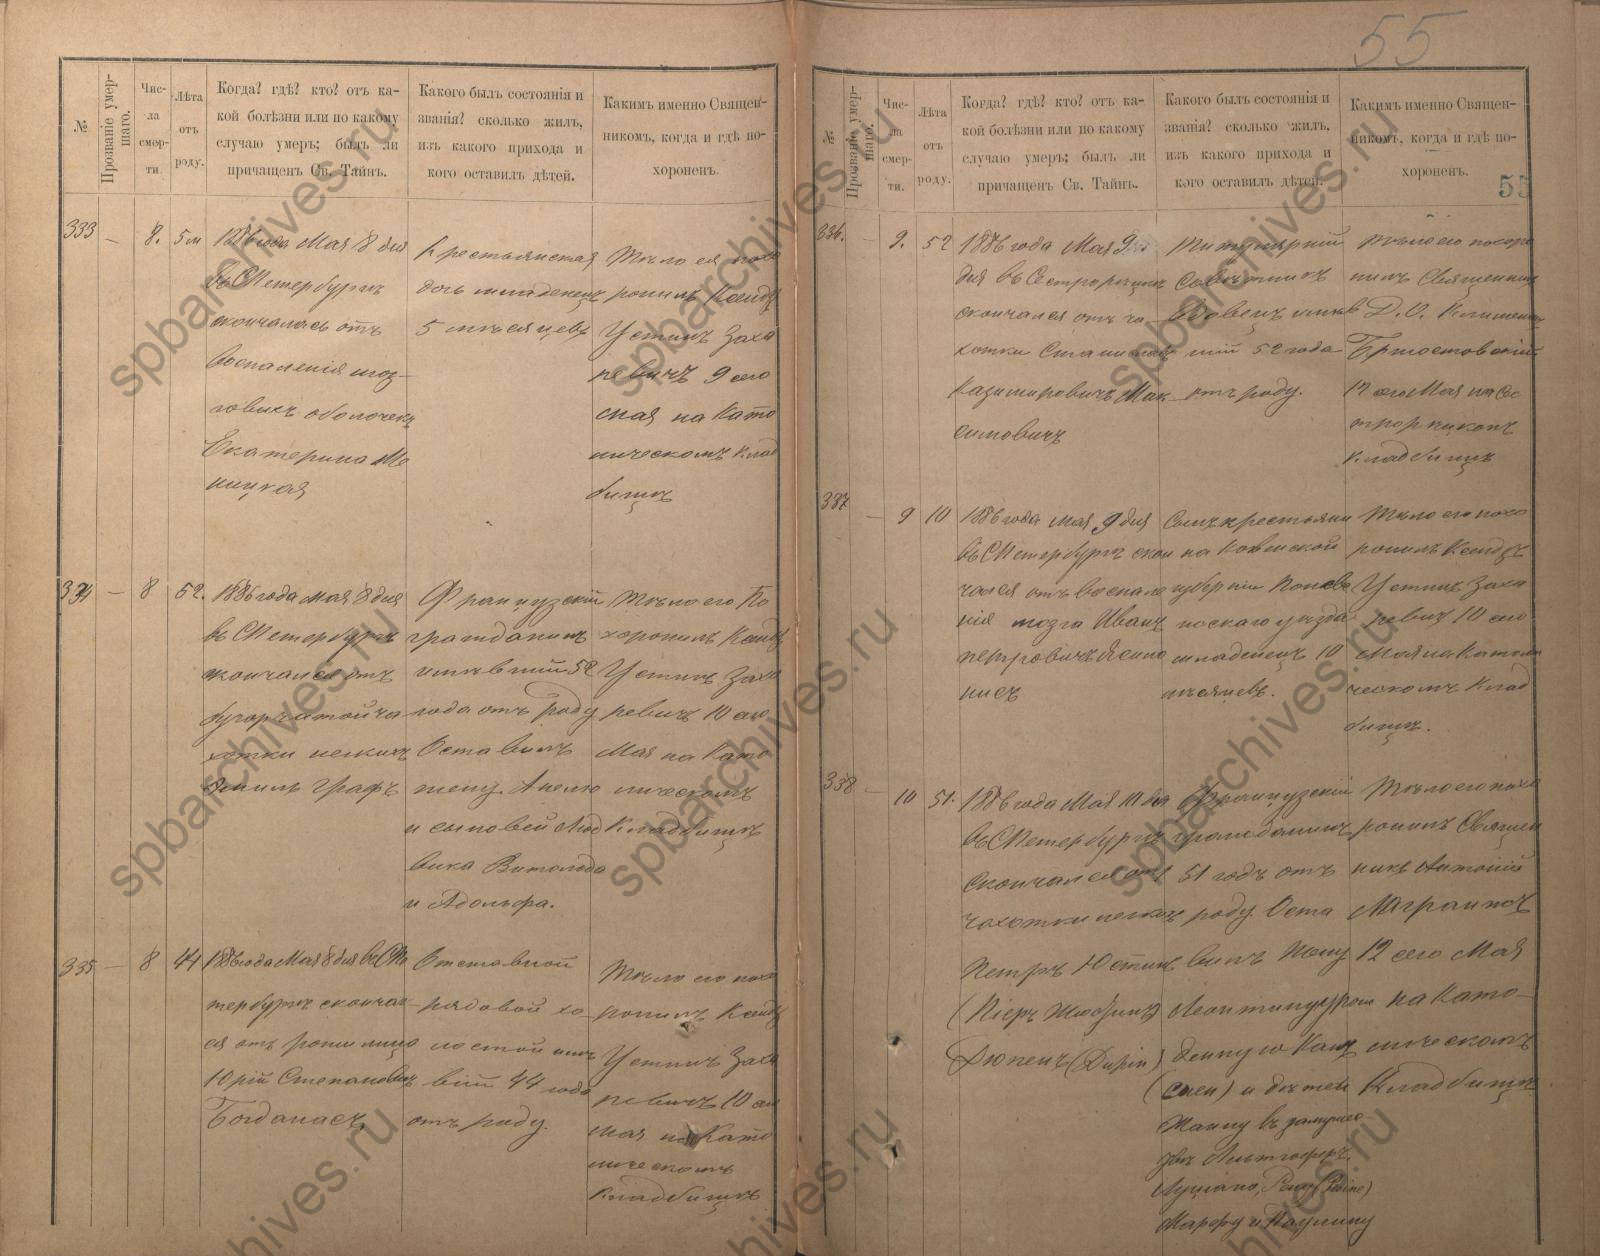 55
№
Прозваніе умер-
шаго.
Чис-
ла
смер-
ти.
Лѣта
отъ
роду.
Когда? гдѣ? кто? отъ ка-
кой болѣзни или по какому
случаю умеръ; былъ ли
причащенъ Св. Тайнъ.
Какого былъ состоянія и
званія? сколько жилъ,
изъ какого прихода и
кого оставилъ дѣтей.
Какимъ именно Священ-
никомъ, когда и гдѣ по-
хороненъ.
333
—
8.
5 м
1886 года Мая 8 дня
въ СПетербургѣ
скончалась отъ
воспаленія моз-
говыхъ оболочекъ
Екатерина
Крестьянская
дочь младенецъ
5 мѣсяцевъ
Тѣло ея похо
ронилъ Ксендзъ
Устинъ Заха
ревичъ 9 сего
мая на Като
лическомъ Клад
бищѣ
334
—
8
52.
1886 года мая 8 дня
въ СПетербургѣ
скончался отъ
бугорчатой ча
хотки легкихъ
Эмиль Графъ
Французскій
гражданинъ
имѣвшій 52
года отъ роду
Оставилъ
жену Анелю
и сыновей Люд
вика Витольда
и Адольфа.
Тѣло его По
хоронилъ Ксендзъ
Устинъ Заха
ревичъ 10 сего
Мая на Като
лическомъ
Кладбищѣ
335
—
8
44
1886 года Мая 8 дня въ СПе
тербургѣ сконча
ся отъ
Юрій Степановъ
Богданасъ
Отставной
рядовой хо-
лостой имѣ
вшій 44 года
отъ роду.
Тѣло его похо
ронилъ Ксендзъ
Устинъ Заха
ревичъ 10 сего
мая на Като
лическомъ
Кладбищѣ
№
Прозваніе умер-
шаго.
Чис-
ла
смер-
ти.
Лѣта
отъ
роду.
Когда? гдѣ? кто? отъ ка-
кой болѣзни или по какому
случаю умеръ; былъ ли
причащенъ Св. Тайнъ.
Какого былъ состоянія и
званія? сколько жилъ,
изъ какого прихода и
кого оставилъ дѣтей.
Какимъ именно Священ-
никомъ, когда и гдѣ по-
хороненъ.
55
336.
—
9.
52
1886 года Мая 9
дня въ Сестрорѣцкѣ
скончался отъ ча-
хотки Станиславъ
Казимировичъ Мак
симовичъ
Титулярній
Совѣтникъ
Вдовецъ имѣв
шій 52 года
отъ роду.
Тѣло его похоро
нилъ Священникъ
Д. О. Климентъ
Бржостовскій
12 сего Мая на Се
строрѣцкомъ
Кладбищѣ
337
—
9
10
1886 года мая 9 дня
въ СПетербургѣ скон
чался отъ воспале
нія мозга Иванъ
Петровичъ
Сынъ крестьяни
на Ковенской
губерніи Поневѣ
жскаго уѣзда
младенецъ 10
мѣсяцевъ.
Тѣло его похо
ронилъ Ксендзъ
Устинъ Заха
ревичъ 10 сего
Мая на Католи
ческомъ Клад
бищѣ.
338
—
10
51.
1886 года Мая 10 дня
въ СПетербургѣ
скончался отъ
чахотки легкихъ
Петръ Юстинъ
(Піеръ Жюстинъ)
Дюпенъ (Dupin)
Французскій
гражданинъ
51 годъ отъ
роду. Оста
вилъ жену
Леонтину
и дѣтей
Жанну въ замуже-
Марфу и Паулину
Тѣло его похо
ронилъ Священ
никъ Антоній
12 сего Мая
на Като-
лическомъ
Кладбищѣ
spbarchives.ru
spbarchives.ru
spbarchives.ru
spbarchives.ru
spbarchives.ru
spbarchives.ru
spbarchives.ru
spbarchives.ru
spbarchives.ru